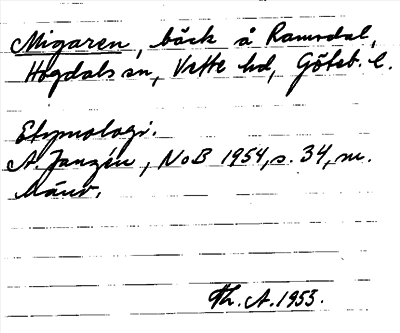 Migaren, bäck å Ramsdal,
Hogdals sn, Vette hd, Göteb. l.
Etymologi.
A. Janzén, NoB 1954, s. 34, m.
hänv.
Th. A. 1953.